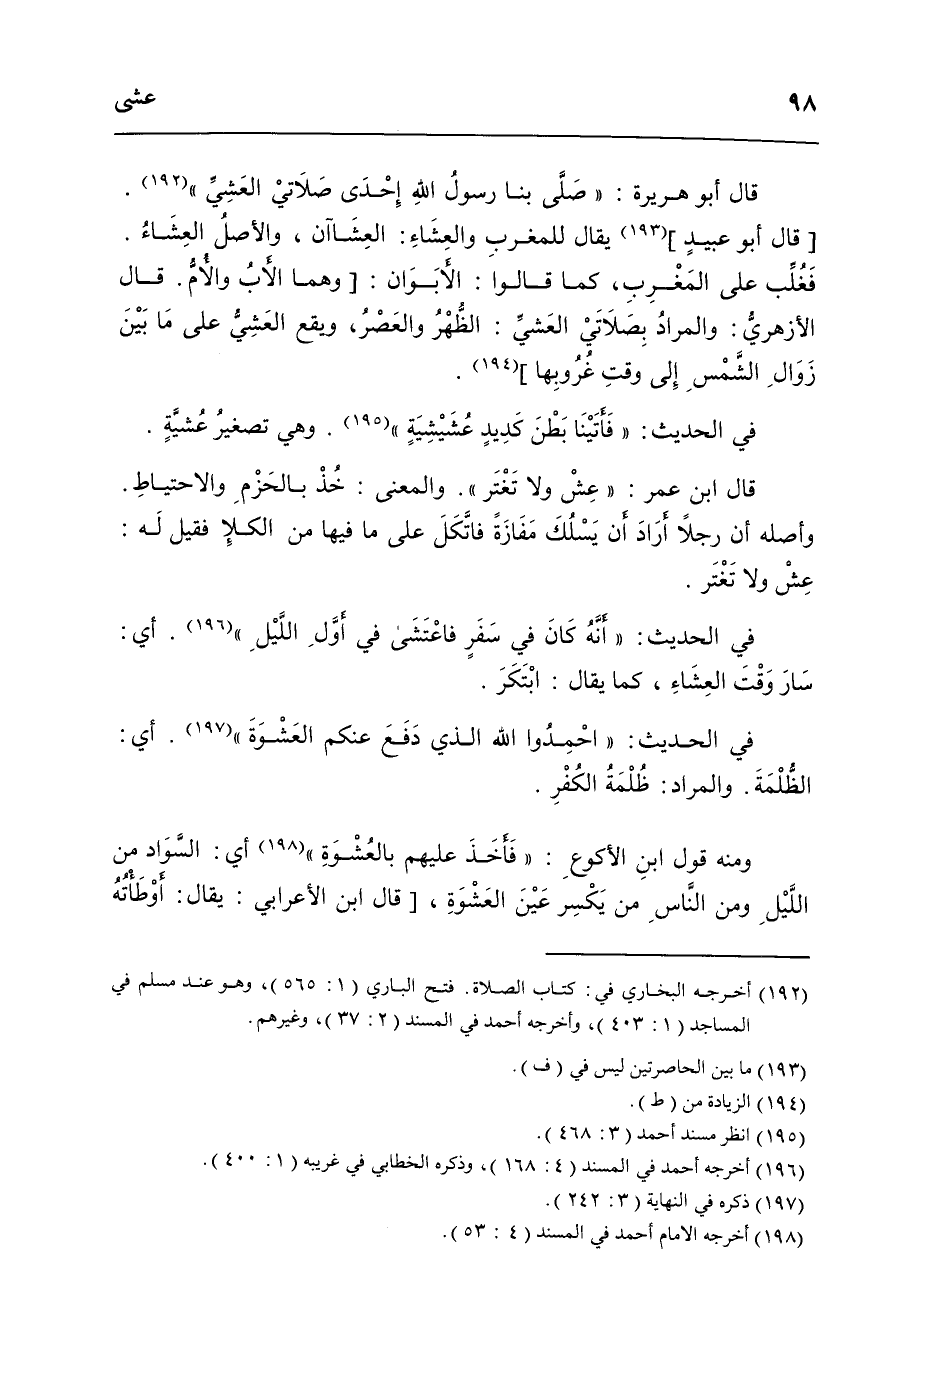 ٩٨
عشى
قال أبو هريرة : « صَلَّى بنا رسولُ اللهِ إِحْدَى صَلَاتيْ العَشِيِّ »(١٩٢) .
[ قال أبو عبيدٍ ](١٩٣) يقال للمغربِ والعِشَاءِ: العِشَاآن ، والأصلُ العِشَاءُ .
فَغُلِّب على المَغْرِبِ، كما قالوا : الأَبَوَان : [ وهما الأَبُ والأُمُّ. قال
الأزهريُّ: والمرادُ بِصَلَاتَيْ العَشيِّ : الظُّهْرُ والعَصْرُ، ويقع العَشِيُّ على مَا بَيْنَ
زَوَالِ الشَّمْسِ إِلى وقتِ غُرُوبِها ](١٩٤) .
في الحديث: « فَأَتَيْنَا بَطْنَ كَدِيدٍ عُشَيْشِيَةٍ »(١٩٥) . وهي تصغيرُ عُشيَّةٍ .
قال ابن عمر : « عِشْ ولا تَغْتَر ». والمعنى : خُذْ بالحَزْمِ والاحتياطِ.
وأصله أن رجلاً أَرَادَ أَن يَسْلُكَ مَفَازَةً فاتَّكَلَ على ما فيها من الكلإِ فقيل لَه :
عِشْ ولا تَغْتَر .
في الحديث: « أَنَّهُ كَانَ في سَفَرٍ فاعْتَشَىٰ في أَوَّلِ اللَّيْلِ »(١٩٦) . أي:
سَارَ وَقْتَ العِشَاءِ ، كما يقال : ابْتَكَرَ .
في الحديث: « احْمِدُوا الله الذي دَفَعَ عنكم العَشْوَةَ »(١٩٧) . أي:
الظُّلْمَةَ. والمراد: ظُلْمَةُ الكُفْرِ .
ومنه قول ابنِ الأكوعِ : « فَأَخَذَ عليهم بالعُشْوَةِ »(١٩٨) أي: السَّوَاد من
اللَّيْلِ ومن النَّاسِ من يَكْسِر عَيْنَ العَشْوَةِ ، [ قال ابن الأعرابي : يقال: أَوْطَأْتُهُ
(١٩٢) أخرجه البخاري في: كتاب الصلاة. فتح الباري ( ١: ٥٦٥ )، وهو عند مسلم في
المساجد ( ١: ٤٠٣ )، وأخرجه أحمد في المسند ( ٢: ٣٧ )، وغيرهم.
(١٩٣) ما بين الحاصرتين ليس في ( ف ).
(١٩٤) الزيادة من ( ط ).
(١٩٥) انظر مسند أحمد ( ٣: ٤٦٨ ).
(١٩٦) أخرجه أحمد في المسند ( ٤: ١٦٨ )، وذكره الخطابي في غريبه ( ١: ٤٠٠ ).
(١٩٧) ذكره في النهاية ( ٣: ٢٤٢ ).
(١٩٨) أخرجه الامام أحمد في المسند ( ٤ : ٥٣ ).